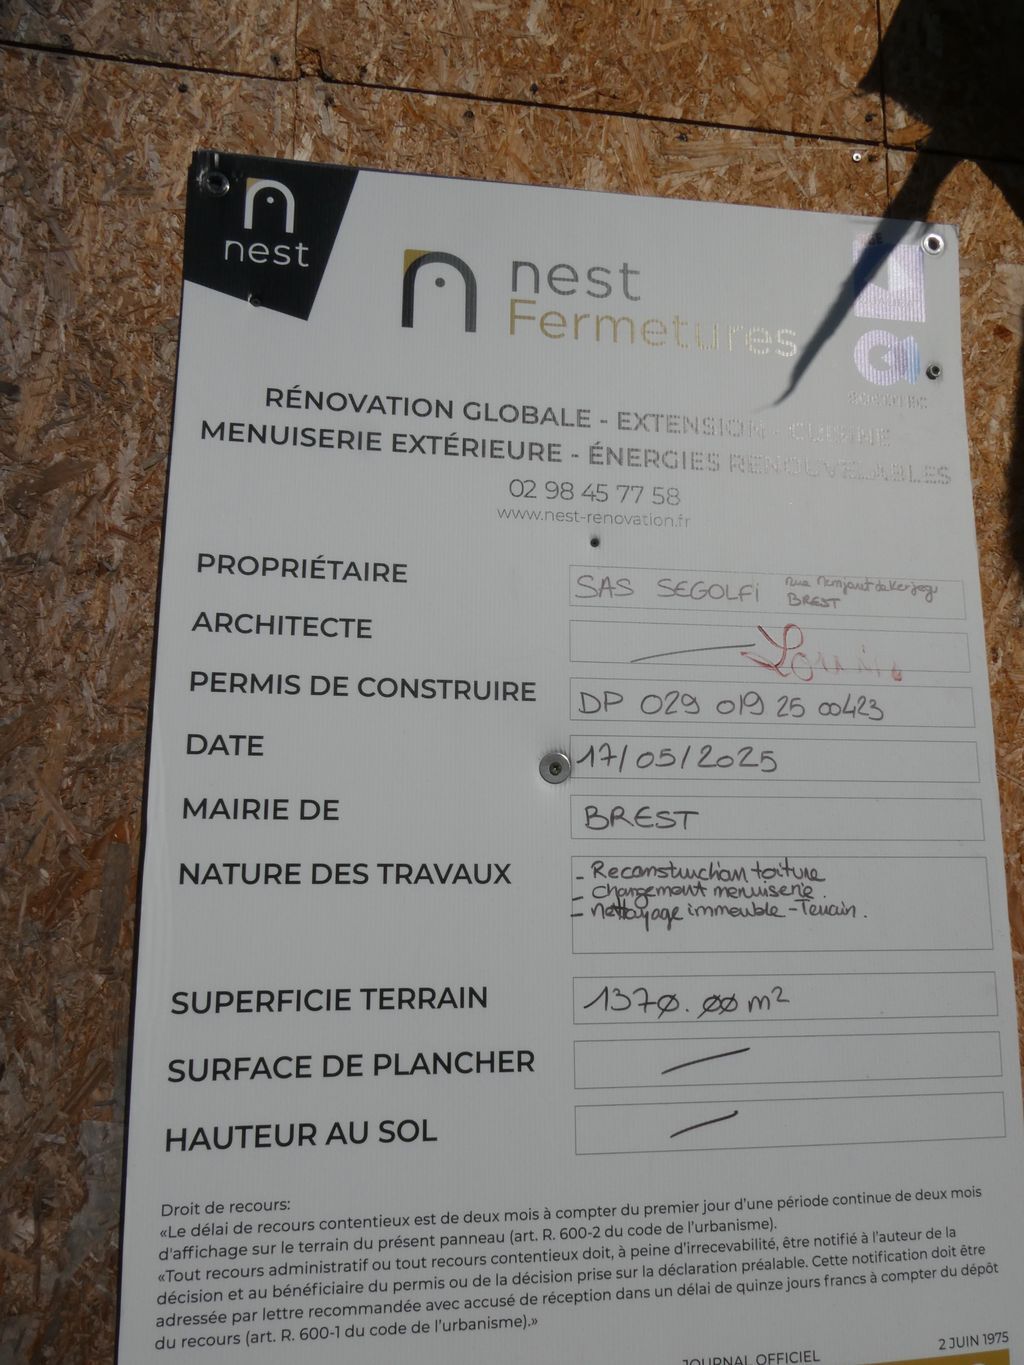 nest
nest
Fermetures
RÉNOVATION GLOBALE - EXTENSION - CUISINE
MENUISERIE EXTÉRIEURE - ÉNERGIES RENOUVELABLES
02 98 45 77 58
www.nest-renovation.fr
PROPRIÉTAIRE SAS SEGOLFI rue
BREST
ARCHITECTE
PERMIS DE CONSTRUIRE DP 029 019 25 00423
DATE 17/05/2025
MAIRIE DE BREST
NATURE DES TRAVAUX - Reconstruction toiture
- changement menuiserie.
- nettoyage immeuble - Terrain.
SUPERFICIE TERRAIN 1370.00 m²
SURFACE DE PLANCHER
HAUTEUR AU SOL
Droit de recours:
«Le délai de recours contentieux est de deux mois à compter du premier jour d'une période continue de deux mois
d'affichage sur le terrain du présent panneau (art. R. 600-2 du code de l'urbanisme).
«Tout recours administratif ou tout recours contentieux doit, à peine d'irrecevabilité, être notifié à l'auteur de la
décision et au bénéficiaire du permis ou de la décision prise sur la déclaration préalable. Cette notification doit être
adressée par lettre recommandée avec accusé de réception dans un délai de quinze jours francs à compter du dépôt
du recours (art. R. 600-1 du code de l'urbanisme).»
JOURNAL OFFICIEL 2 JUIN 1975